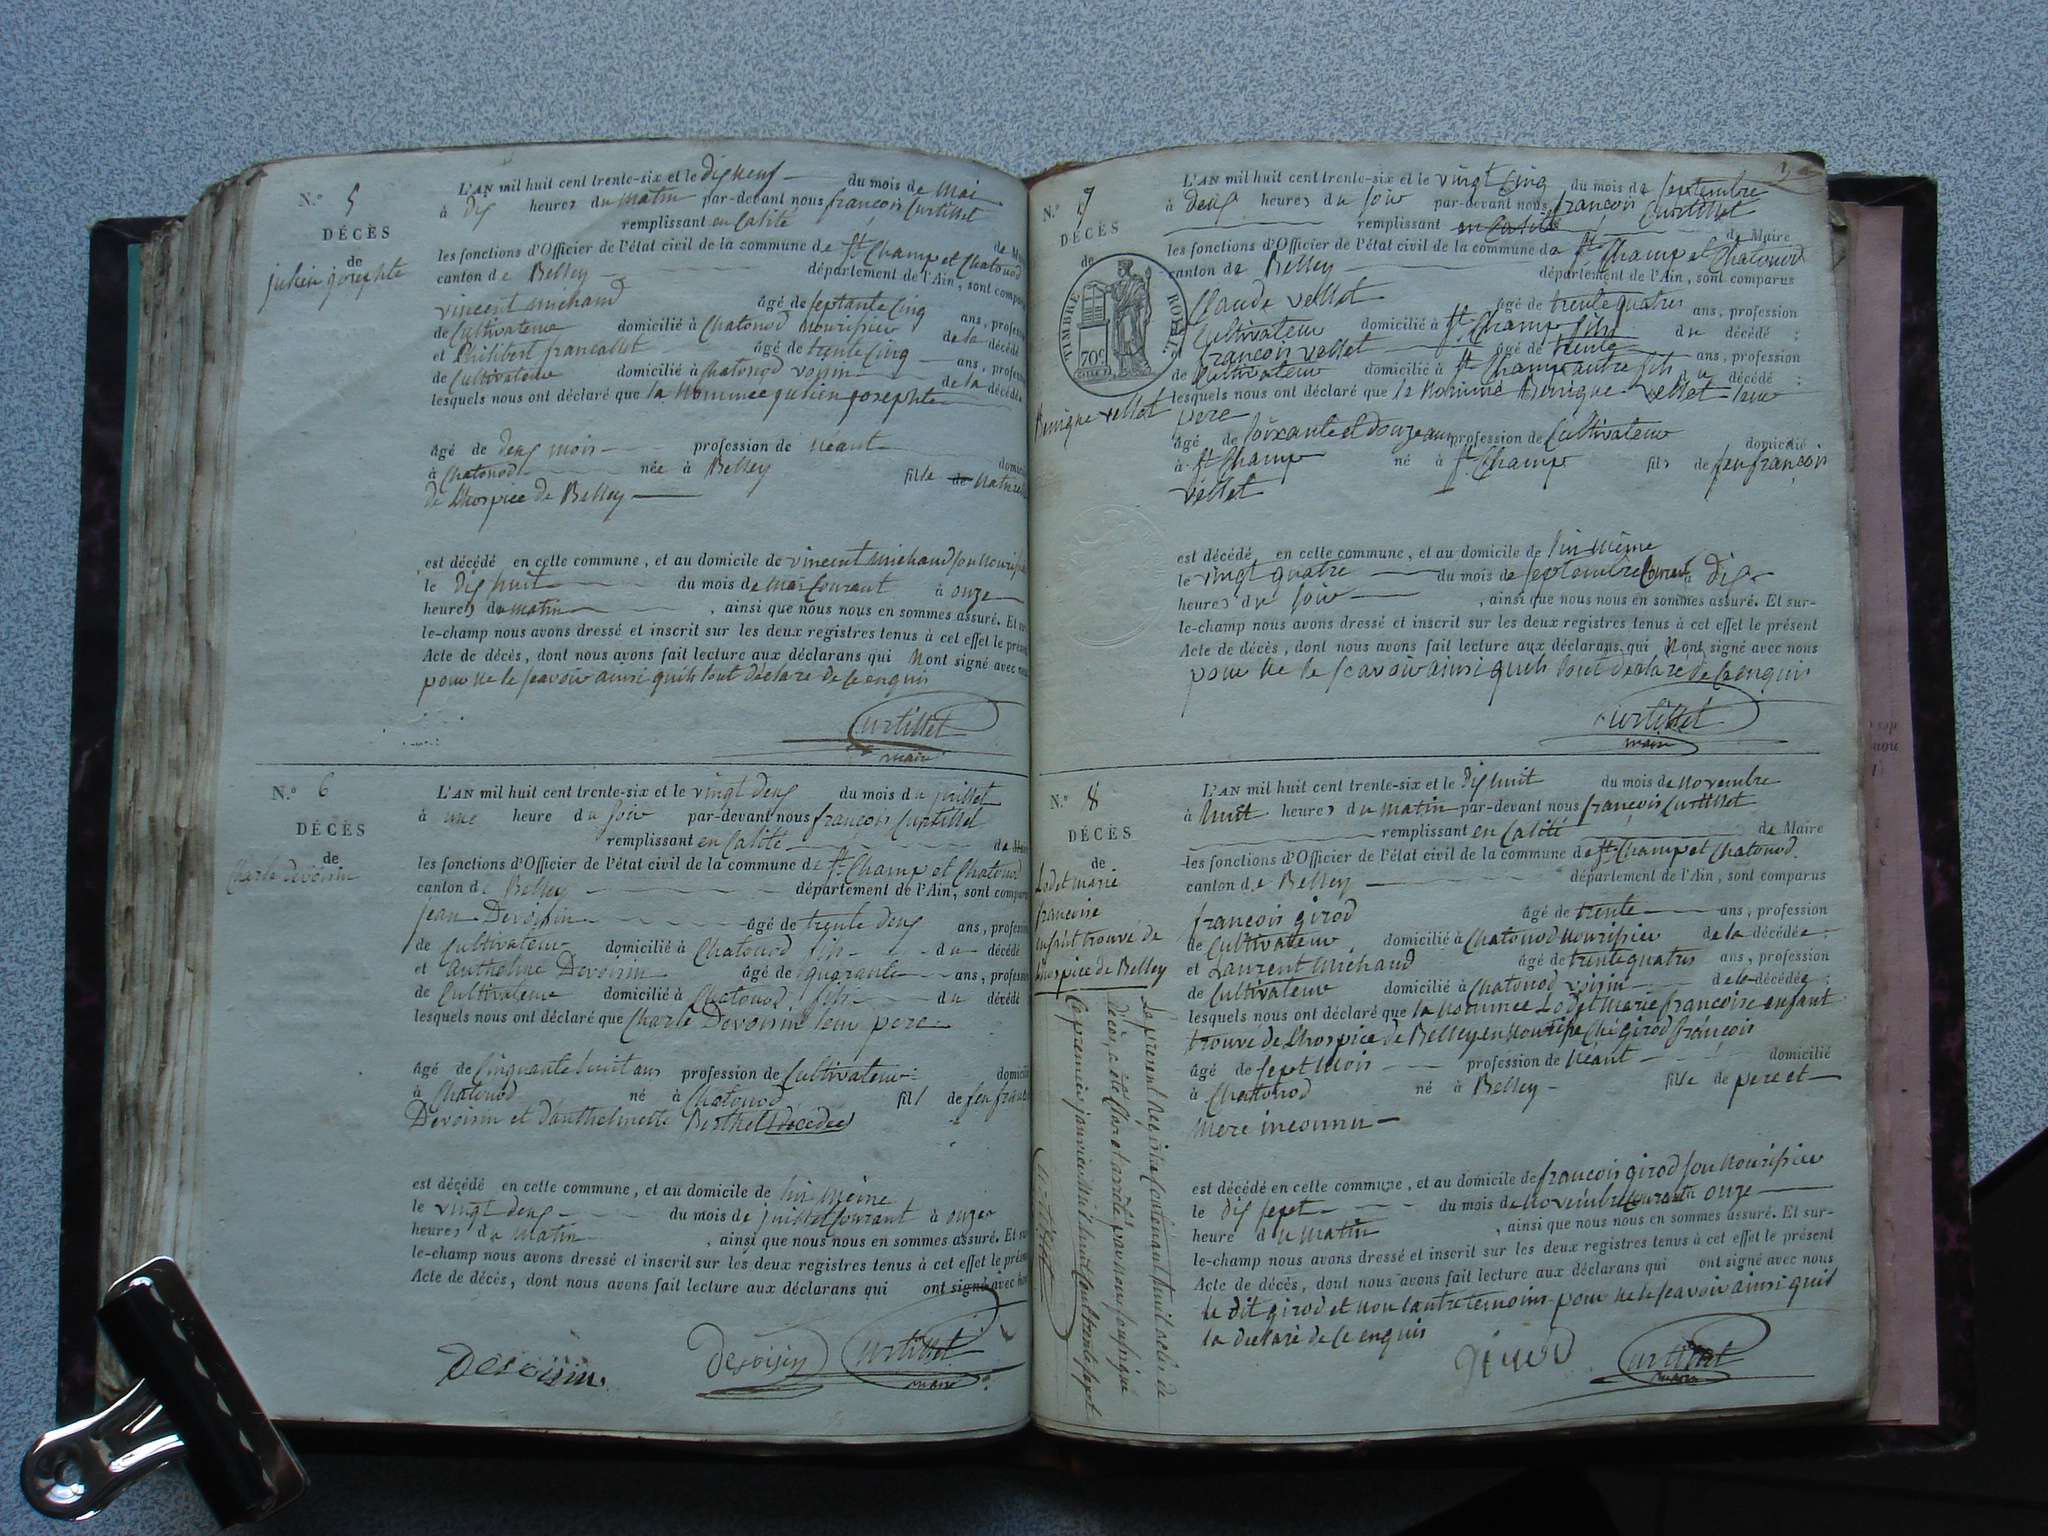 N.° 5
DÉCÈS
de
julien josephte
L'AN mil huit cent trente-six et le dix neuf du mois de mai
à dix heures du matin par-devant nous françois Curtillet
remplissant en calité de Maire
les fonctions d'Officier de l'état civil de la commune de St. Champ et Chatonod
canton de Belley département de l'Ain, sont comparus
vincent michaud âgé de septante cinq ans, profession
de Cultivateur domicilié à Chatonod nourisier de la décédé
et Philibert francallet âgé de trente cinq ans, profession
de Cultivateur domicilié à Chatonod voisin de la décédée
lesquels nous ont déclaré que la nommée julien josephte
âgé de deux mois profession de neant domicilié
à Chatonod née à Belley fille de naturel
de Lhospice de Belley
est décédé en cette commune, et au domicile de vincent michaud son nourisier
le dix huit du mois de mai Courant à onze
heures du matin, ainsi que nous nous en sommes assuré. Et sur-
le-champ nous avons dressé et inscrit sur les deux registres tenus à cet effet le présent
Acte de décès, dont nous avons fait lecture aux déclarans qui Nont signé avec nous
pour ne le scavoir ainsi quils lont déclaré de ce enquis
Curtillet
maire
N.° 6
DÉCÈS
de
Charle Devoisin
L'AN mil huit cent trente-six et le vingt deux du mois du juillet
à une heure du soir par-devant nous françois Curtillet
remplissant en calité de Maire
les fonctions d'Officier de l'état civil de la commune de St. Champ et Chatonod
canton de Belley département de l'Ain, sont comparus
jean Devoisin âgé de trente deux ans, profession
de Cultivateur domicilié à Chatonod fils du décédé
et anthelme Devoisin âgé de quarante ans, profession
de Cultivateur domicilié à Chatonod fils du décédé
lesquels nous ont déclaré que Charle Devoisin leur pere
âgé de Cinquante huit ans profession de Cultivateur domicilié
à Chatonod né à Chatonod fils de feu françois
Devoisin et danthelmette Berthet décédés
est décédé en cette commune, et au domicile de lui même
le vingt deux du mois de juillet Courant à onze
heures du matin, ainsi que nous nous en sommes assuré. Et sur-
le-champ nous avons dressé et inscrit sur les deux registres tenus à cet effet le présent
Acte de décès, dont nous avons fait lecture aux déclarans qui ont signé avec nous
Devoisin Devoisin Curtillet
maire
N.° 7
DÉCÈS
de
TIMBRE ROYAL
70c
Benigne vellet
L'AN mil huit cent trente-six et le vingt Cinq du mois de septembre
à deux heures du soir par-devant nous françois Curtillet
remplissant en calité de Maire
les fonctions d'Officier de l'état civil de la commune de St. Champ et Chatonod
canton de Belley département de l'Ain, sont comparus
Claude vellet âgé de trente quatre ans, profession
Cultivateur domicilié à St. Champ fils du décédé ;
françois vellet âgé de trente ans, profession
de Cultivateur domicilié à St. Champ autre fils du décédé ;
lesquels nous ont déclaré que le nommé Benigne vellet leur
pere
âgé de soixante et douze ans profession de Cultivateur domicilié
à St. Champ né à St. Champ fils de feu françois
vellet
est décédé en cette commune, et au domicile de lui même
le vingt quatre du mois de septembre Courant à dix
heures du soir, ainsi que nous nous en sommes assuré. Et sur-
le-champ nous avons dressé et inscrit sur les deux registres tenus à cet effet le présent
Acte de décès, dont nous avons fait lecture aux déclarans qui Nont signé avec nous
pour ne le scavoir ainsi quils lont déclaré de ce enquis
Curtillet
maire
N.° 8
DÉCÈS
de
Lodet marie
francoise
enfant trouve de
Lhospice de Belley
L'AN mil huit cent trente-six et le dix huit du mois de novembre
à huit heures du matin par-devant nous françois Curtillet
remplissant en calité de Maire
les fonctions d'Officier de l'état civil de la commune de St. Champ et Chatonod
canton de Belley département de l'Ain, sont comparus
francois girod âgé de trente ans, profession
de Cultivateur domicilié à Chatonod nourisier de la décédée ;
et Laurent michaud âgé de trente quatre ans, profession
de Cultivateur domicilié à Chatonod voisin de la décédée ;
lesquels nous ont déclaré que la nommée Lodet marie francoise enfant
trouve de Lhospice de Belley en nourise Ché girod françois
âgé de sept mois profession de neant domicilié
à Chatonod né à Belley fille de pere et
mere inconnu
est décédé en cette commune, et au domicile de francois girod son nourisier
le dix sept du mois de novembre Courant à onze
heure du matin, ainsi que nous nous en sommes assuré. Et sur-
le-champ nous avons dressé et inscrit sur les deux registres tenus à cet effet le présent
Acte de décès, dont nous avons fait lecture aux déclarans qui ont signé avec nous
le dit girod et non lautre temoins pour ne le scavoir ainsi quil
la declaré de ce enquis
girod Curtillet
maire
Le present Registre Contenant huit actes de
décès, a été Clos et arrêté par nous soussigné
Ce premier janvier mil huit Cent trente sept
Curtillet